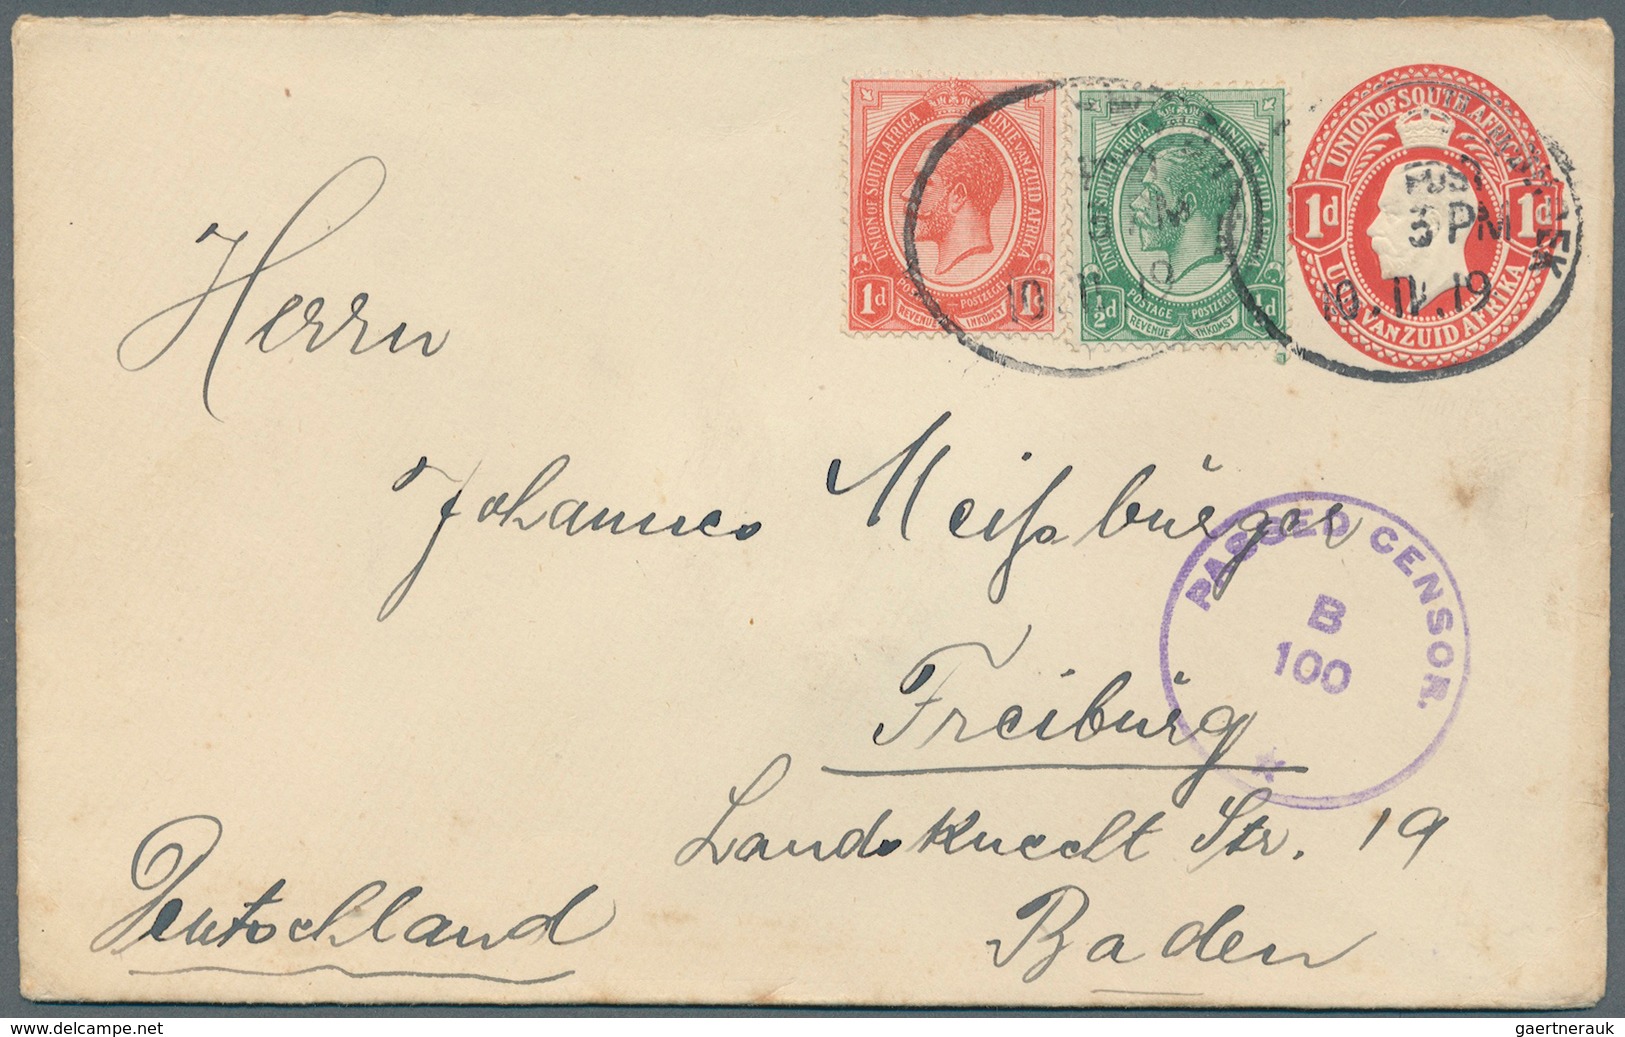 UNION OF SOUTH AFRICA UNIE VAN ZUID AFRIKA
1d POSTAGE POSTZEGEL 1d
REVENUE INKOMST
UNION OF SOUTH AFRICA UNIE VAN ZUID AFRIKA
½d POSTAGE POSTZEGEL ½d
REVENUE INKOMST
UNION OF SOUTH AFRICA
1d 1d
UNIE VAN ZUID AFRIKA
POST
3 PM
10. IV. 19
Herrn
Johannes Meißbürger
PASSED CENSOR.
B
100
Freiburg
Landsknecht Str. 19
Deutschland
Baden
www.delcampe.net
gaertnerauk